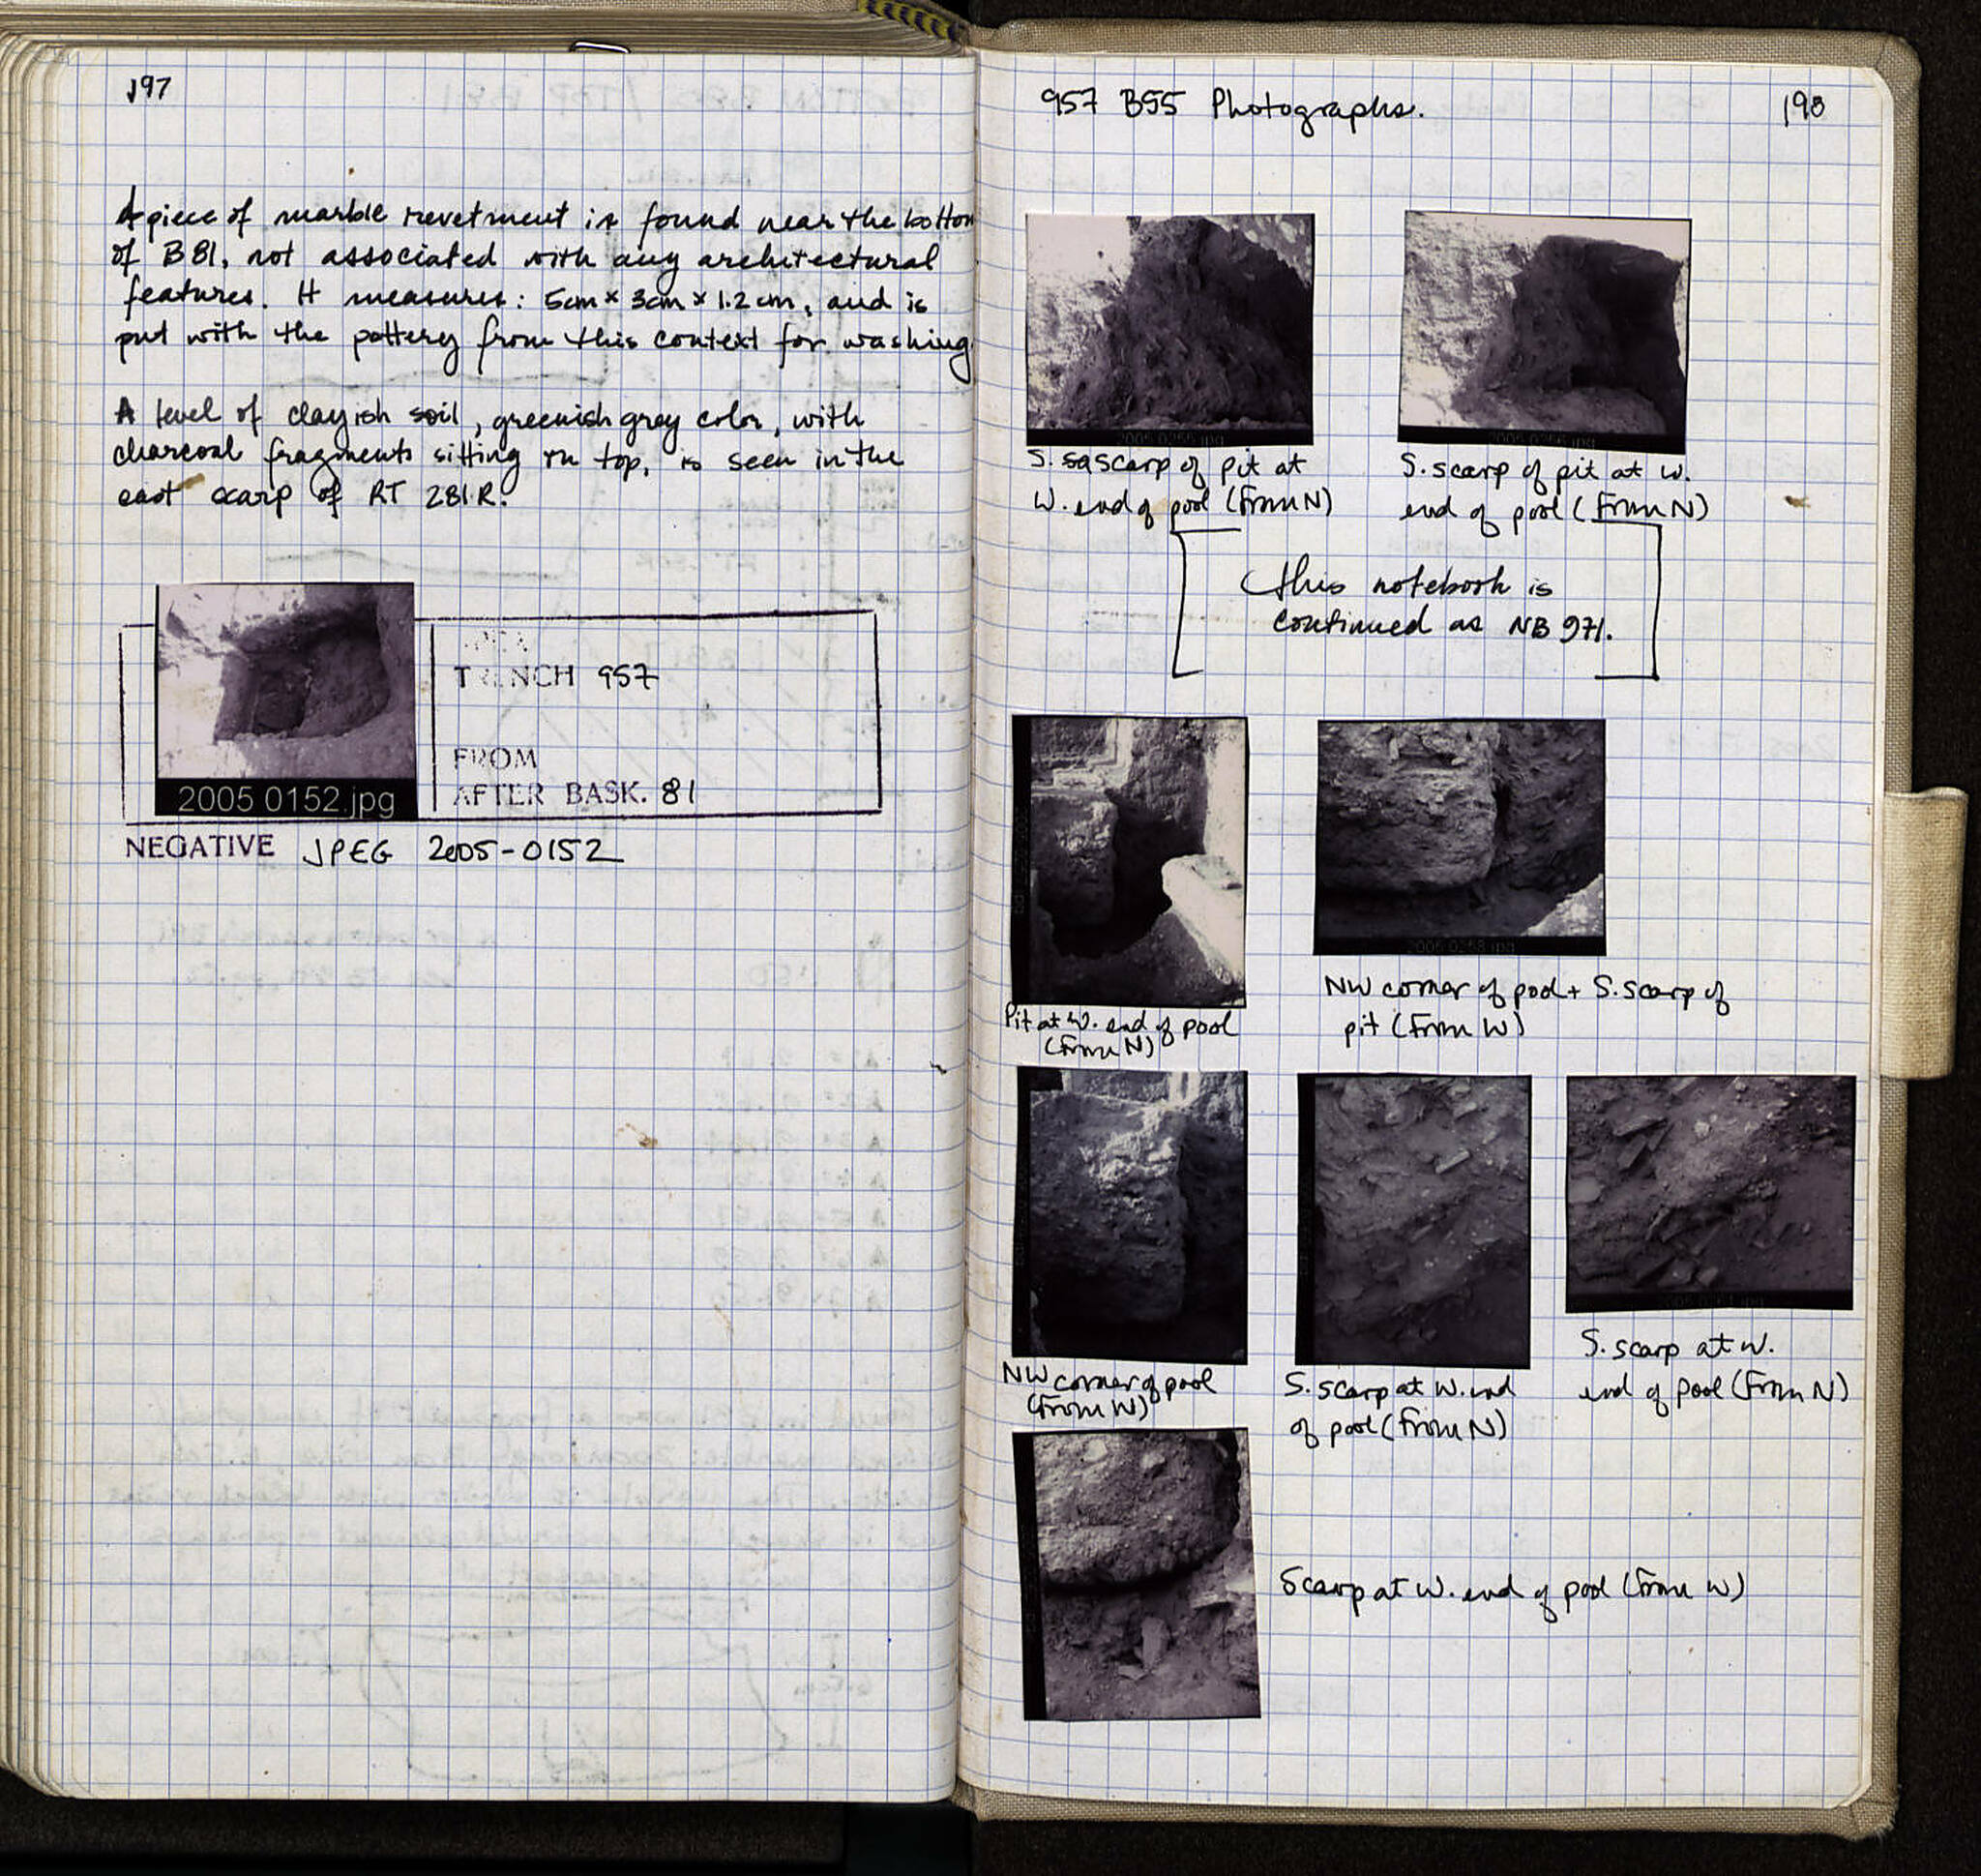 197
A piece of marble revetment is found near the bottom
of B81, not associated with any architectural
features. It measures: 5cm x 3cm x 1.2 cm, and is
put with the pottery from this context for washing.
A level of clayish soil, greenish grey color, with
charcoal fragments sitting on top, is seen in the
east scarp of RT 281R.
TRENCH 957
FROM
AFTER BASK. 81
2005 0152.jpg
NEGATIVE JPEG 2005-0152
957 B55 Photographs.
198
2005 0255.jpg
2005 0256.jpg
S. scarp of pit at
W. end of pool (From N)
S. scarp of pit at W.
end of pool (From N)
This notebook is
continued as NB 971.
2005 0258.jpg
Pit at W. end of pool
(From N)
NW corner of pool + S. scarp of
pit (From W)
NW corner of pool
(From W)
S. scarp at W. end
of pool (From N)
S. scarp at W.
end of pool (From N)
Scarp at W. end of pool (From W)